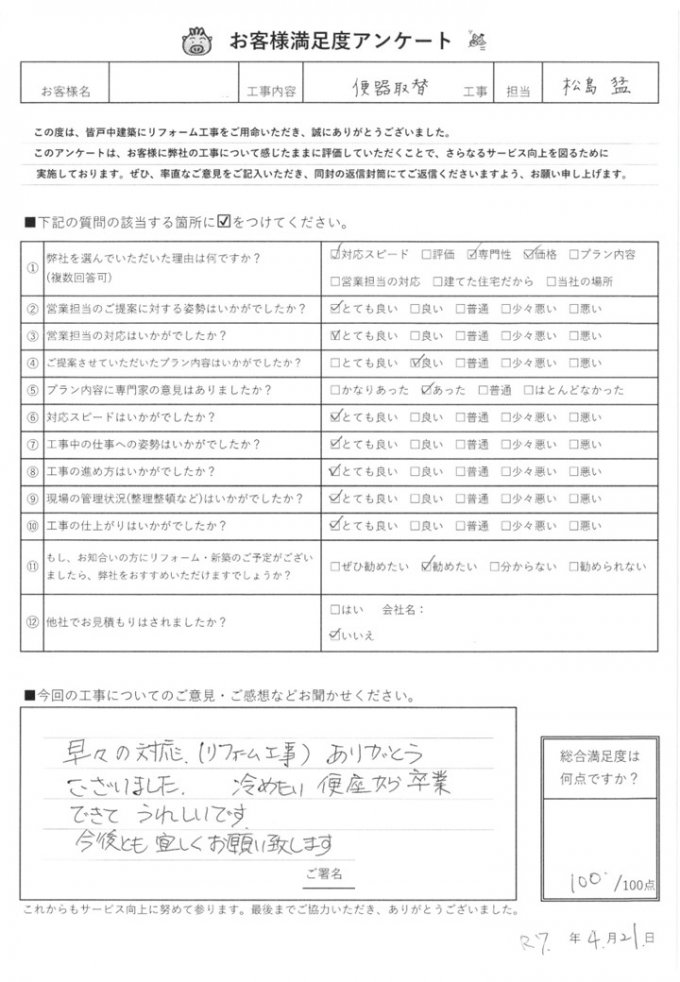 お客様満足度アンケート
お客様名 工事内容 便器取替 工事 担当 松島 猛
この度は、皆戸中建築にリフォーム工事をご用命いただき、誠にありがとうございました。
このアンケートは、お客様に弊社の工事について感じたままに評価していただくことで、さらなるサービス向上を図るために
実施しております。ぜひ、率直なご意見をご記入いただき、同封の返信封筒にてご返信くださいますよう、お願い申し上げます。
■下記の質問の該当する箇所に☑をつけてください。
① 弊社を選んでいただいた理由は何ですか？
(複数回答可)
☑対応スピード □評価 ☑専門性 ☑価格 □プラン内容
□営業担当の対応 □建てた住宅だから □当社の場所
② 営業担当のご提案に対する姿勢はいかがでしたか？ ☑とても良い □良い □普通 □少々悪い □悪い
③ 営業担当の対応はいかがでしたか？ ☑とても良い □良い □普通 □少々悪い □悪い
④ ご提案させていただいたプラン内容はいかがでしたか？ □とても良い ☑良い □普通 □少々悪い □悪い
⑤ プラン内容に専門家の意見はありましたか？ □かなりあった ☑あった □普通 □ほとんどなかった
⑥ 対応スピードはいかがでしたか？ ☑とても良い □良い □普通 □少々悪い □悪い
⑦ 工事中の仕事への姿勢はいかがでしたか？ ☑とても良い □良い □普通 □少々悪い □悪い
⑧ 工事の進め方はいかがでしたか？ ☑とても良い □良い □普通 □少々悪い □悪い
⑨ 現場の管理状況(整理整頓など)はいかがでしたか？ ☑とても良い □良い □普通 □少々悪い □悪い
⑩ 工事の仕上がりはいかがでしたか？ ☑とても良い □良い □普通 □少々悪い □悪い
⑪ もし、お知合いの方にリフォーム・新築のご予定がござい
ましたら、弊社をおすすめいただけますでしょうか？
□ぜひ勧めたい ☑勧めたい □分からない □勧められない
⑫ 他社でお見積もりはされましたか？
□はい 会社名：
☑いいえ
■今回の工事についてのご意見・ご感想などお聞かせください。
早々の対応、(リフォーム工事) ありがとう
ございました。 冷めたい便座から卒業
できて うれしいです
今後とも宜しくお願い致します
ご署名
総合満足度は
何点ですか？
100 /100点
これからもサービス向上に努めて参ります。最後までご協力いただき、ありがとうございました。
R7. 年 4.月21.日